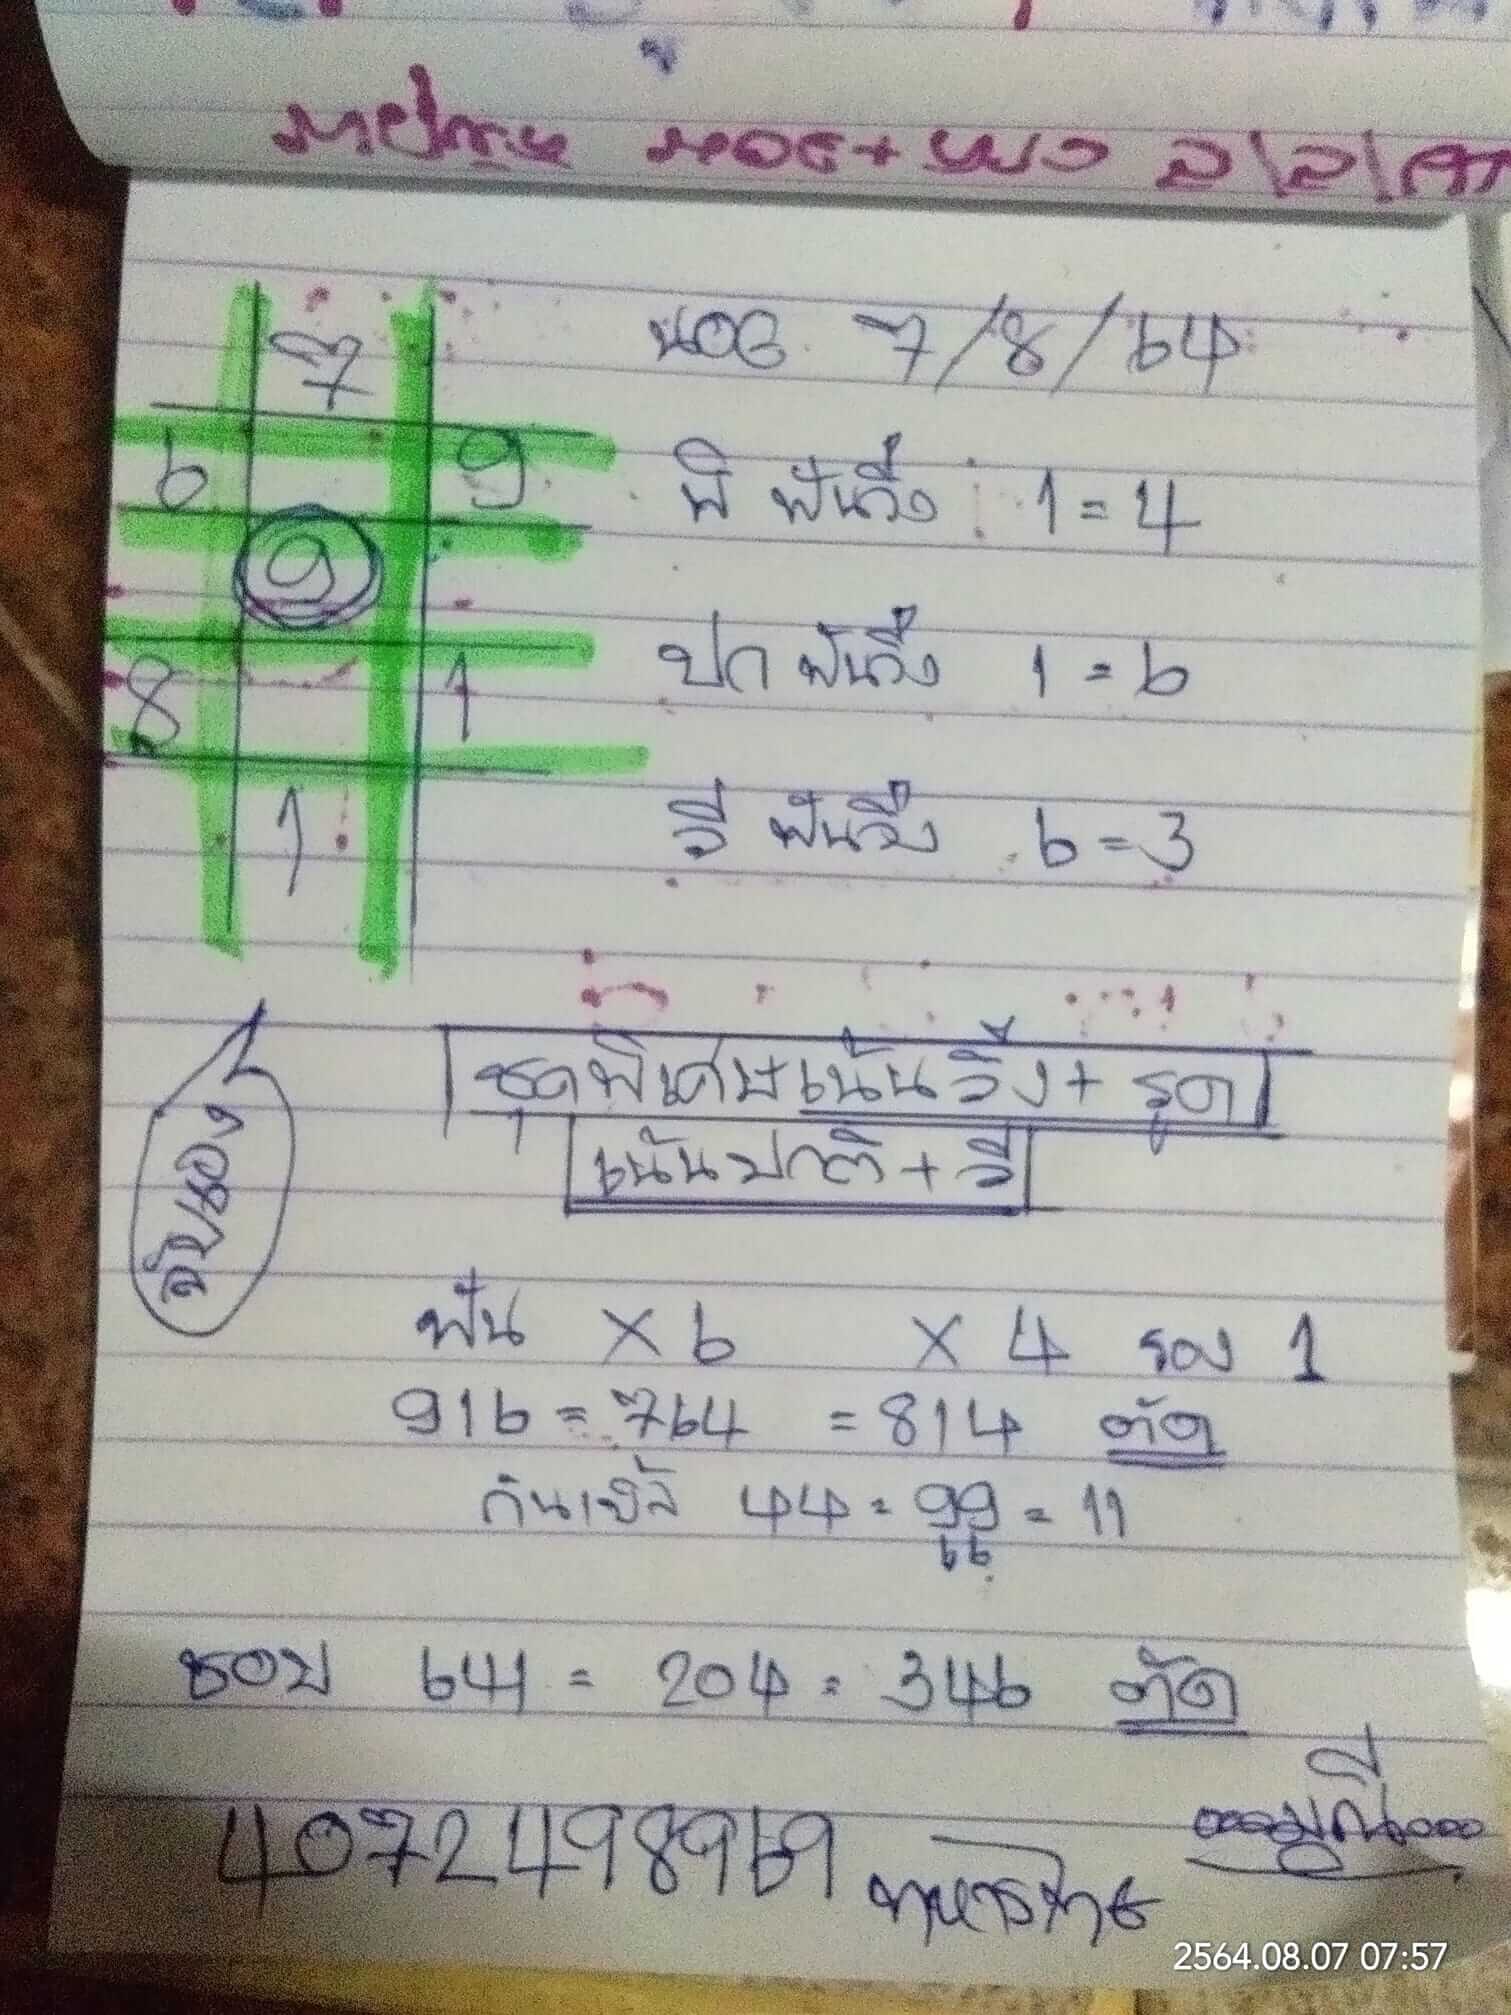 7
6 9
9
8 1
1
นอย 7/8/64
พิ ฟันวิ่ง 1=4
ปก ฟันวิ่ง 1=6
วี ฟันวิ่ง 6=3
ชุดพิเศษเน้นวิ่ง+รูด
เน้นปกติ+วี
ฟัน X6 X4 รอง 1
916=764 =814 ตัด
กันเบิ้ล 44=99=11
66
ชอบ 641=204=346 ตัด
4072498969
2564.08.07 07:57